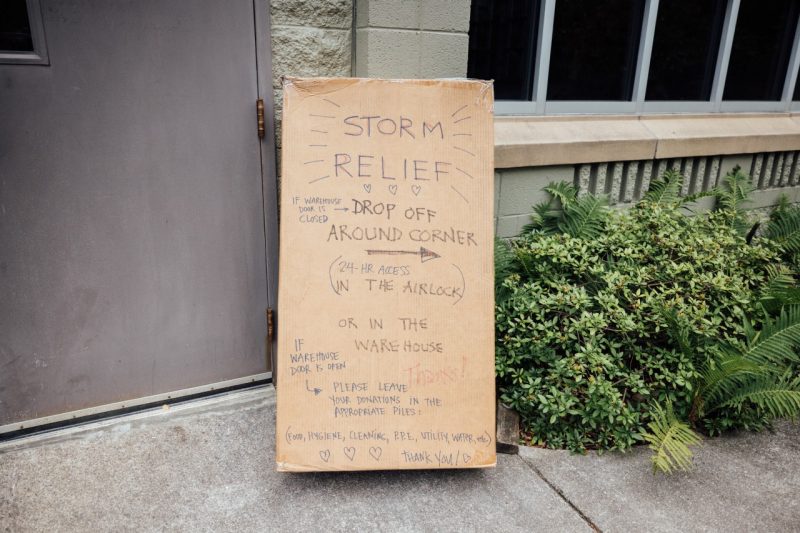 STORM
RELIEF
IF WAREHOUSE
DOOR IS
CLOSED
DROP OFF
AROUND CORNER
(24-HR ACCESS
IN THE AIRLOCK)
OR IN THE
WAREHOUSE
IF
WAREHOUSE
DOOR IS OPEN
THANKS!
PLEASE LEAVE
YOUR DONATIONS IN THE
APPROPRIATE PILES:
(FOOD, HYGIENE, CLEANING, P.P.E., UTILITY, WATER, etc.)
THANK YOU!